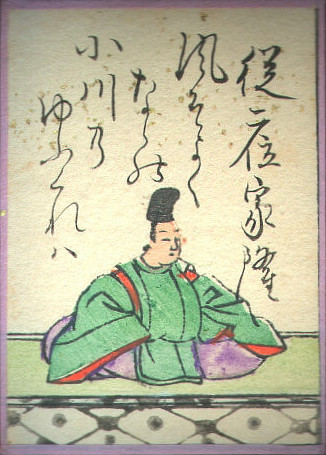 從二位家隆
風そよく
ならの
小川乃
ゆふくれハ